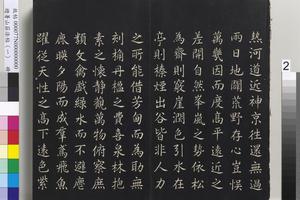 熱河道近神京往還無過
兩日地闢荒野存心豈悞
萬幾因而度高平遠近之
差開自然峯嵐之勢依松
為齋則竅崖潤色引水在
亭則榛煙出谷皆非人力
之所能借芳甸而為助無
刻桷丹楹之費喜泉林抱
素之懷靜觀萬物俯察庶
類文禽戲綠水而不避麀
鹿映夕陽而成羣鳶飛魚
躍從天性之高下遠色紫
2